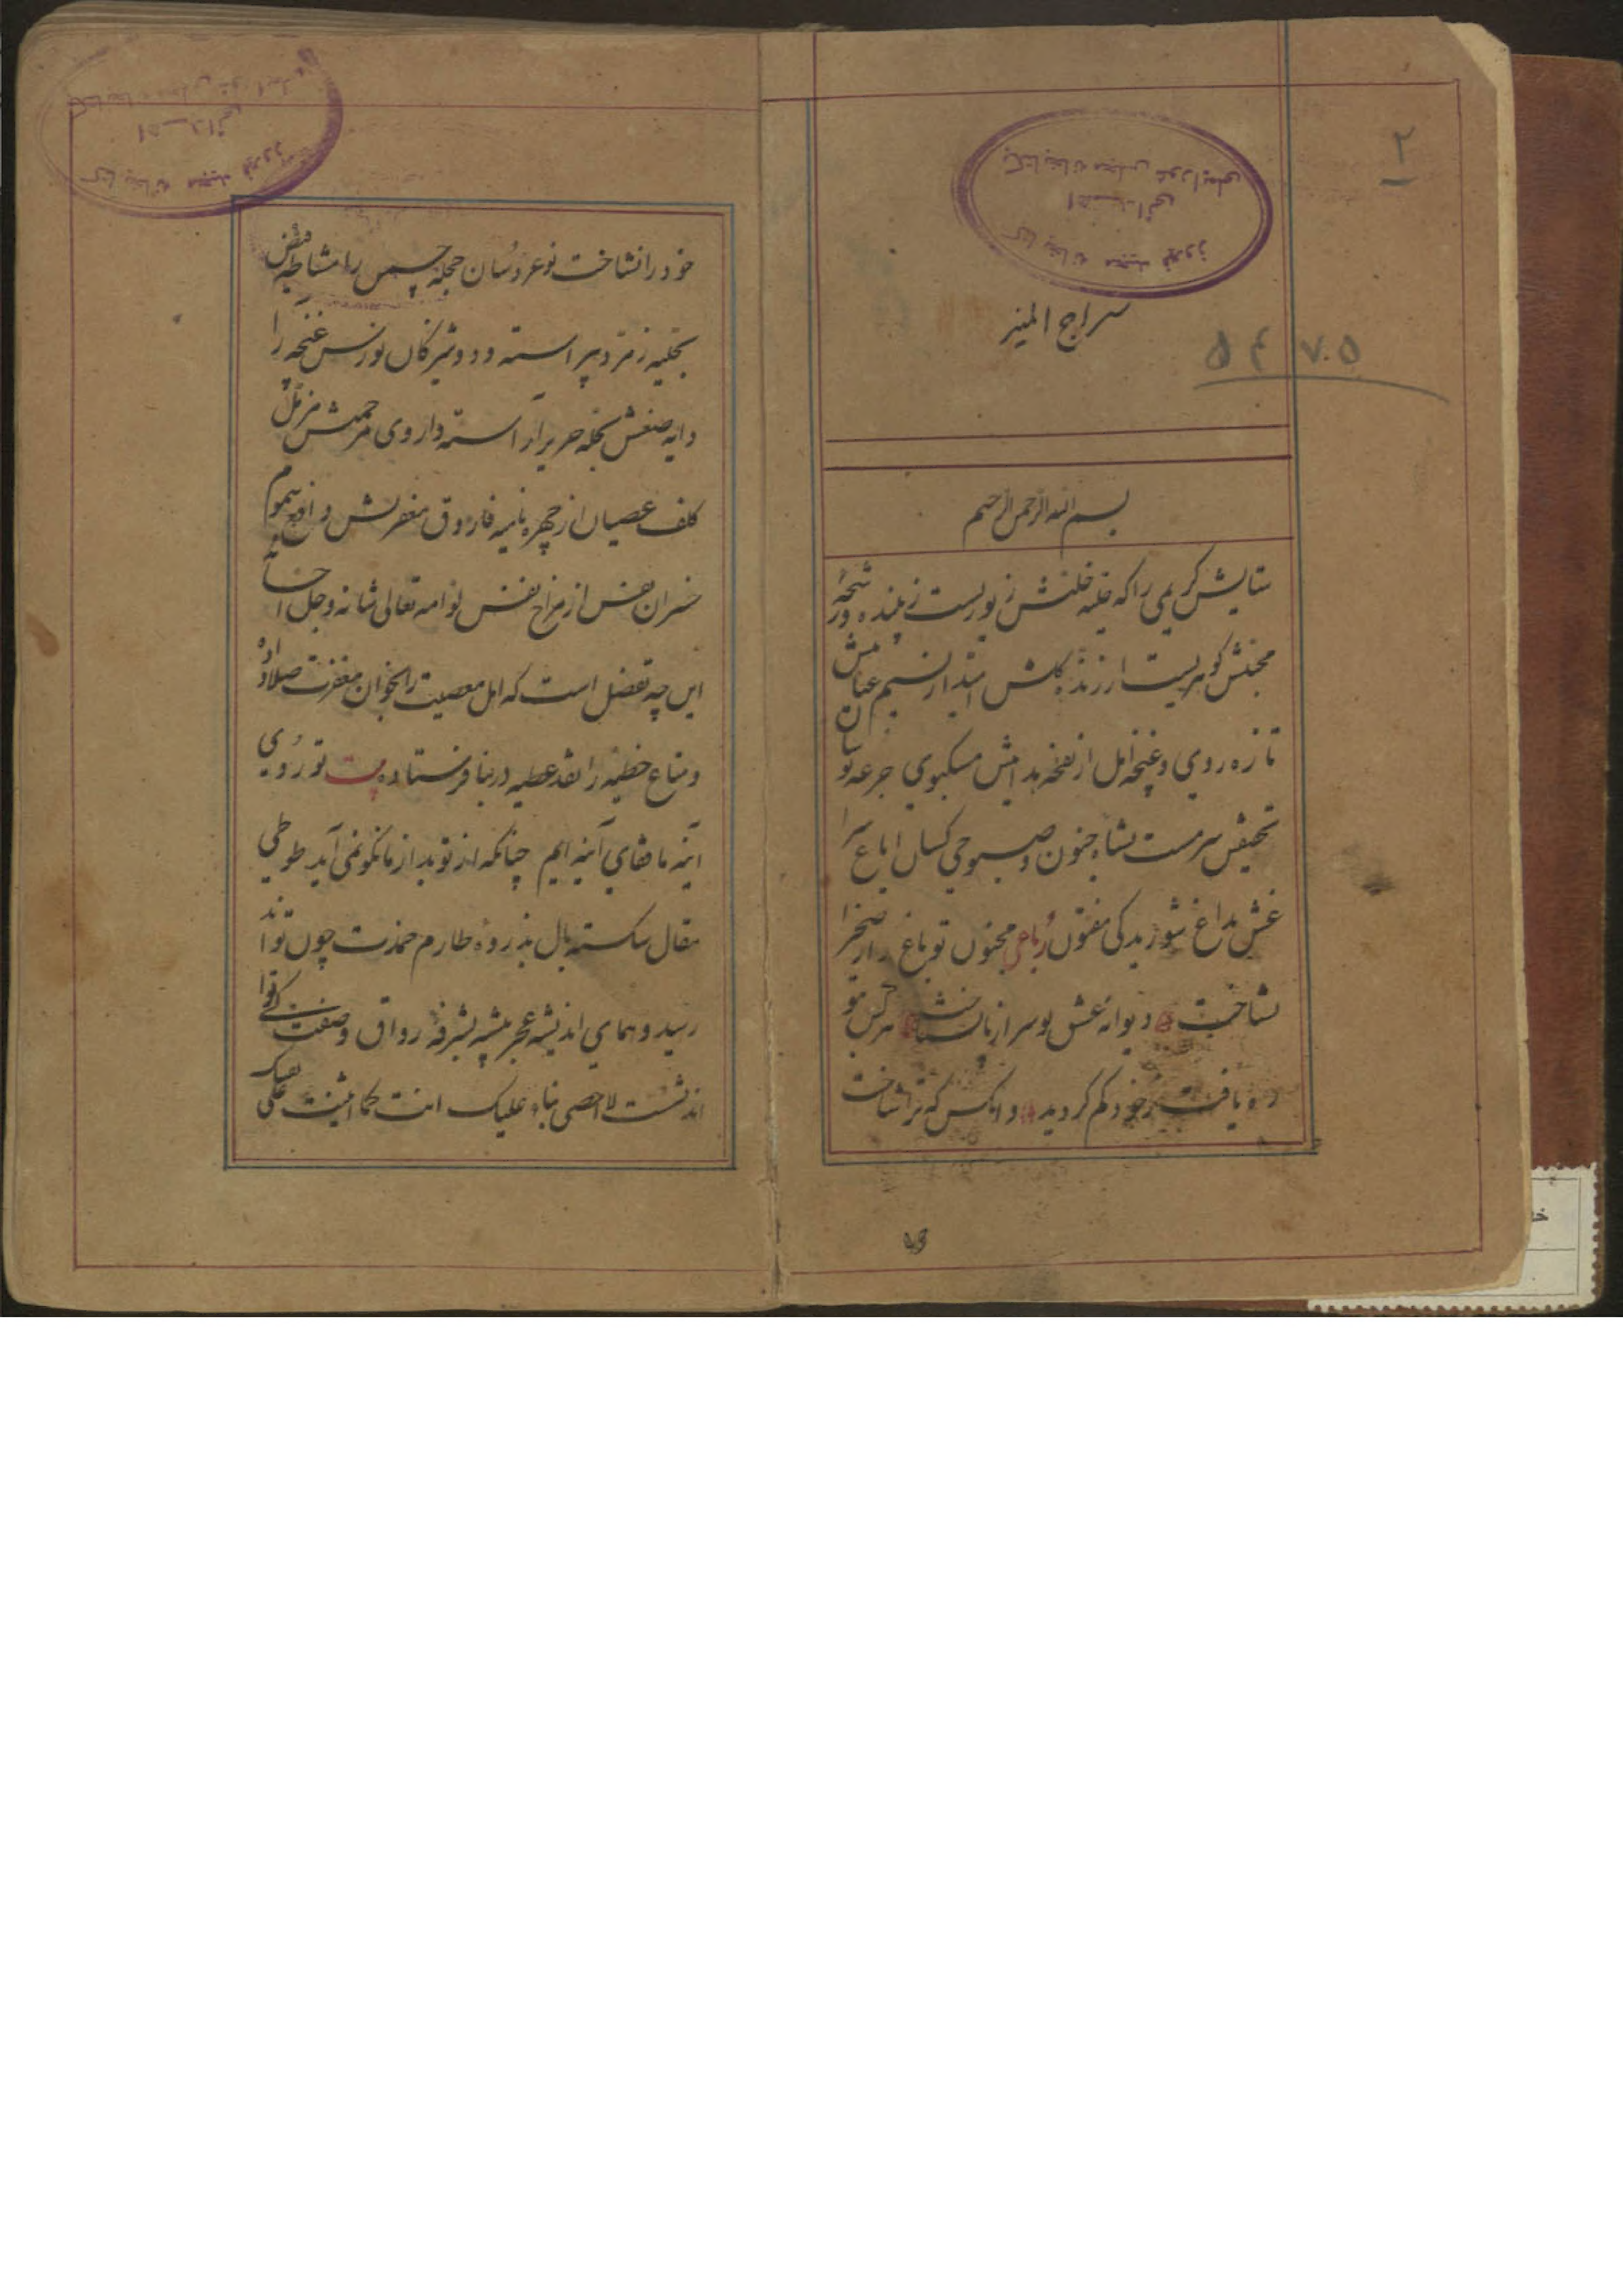 ۲
کتابخانه مجید فیروز
اهدائی
بکتابخانه مجلس شورایملی
سراج المنیر
بسم الله الرحمن الرحیم
ستایش کریمی را که حلیه خلتش زیوریست زیبنده و شجره
محبتش گوهریست ارزنده گلشن امید از نسیم عنایتش
تازه روی و غنچه امل از نفخه هدایتش مشکبوی جرعه نوشان
تحقیقش سرمست نشاه جنون و صبوحی کشان ایاغ
عشق بداغ شوریدگی مفتون رباعی مجنون تو باغ را از صحرا
نشاخت دیوانه عشق تو سر از پا نشناخت هر کس بتو
ره یافت ز خود گم گردید وانکس که ترا شناخت
خود را نشاخت نوعروسان حجله چمن را مشاطه فیض
بحلیه زمرد پیراسته و دوشیزگان نورس غنچه را
دایه صنعش بحله حریر آراسته داروی مرحمتش مزیل
کلف عصیان از چهره نامیه فاروق مغفرتش دافع سموم
خسران از مزاج نفس لوامه تعالی شانه و جل احسانه
این چه تفضل است که اهل معصیت را بخوان مغفرت صلا داده
و متاع خطیه را نقد عطیه در بها فرستاده بیت تو روی
آینه ما قفای آینه ایم چنانکه از تو بد از ما نکو نمی آید طوطی
مقال شکسته بال بذروه طارم حمدت چون تواند
رسید و همای اندیشه عجز پیشه بشرفه رواق وصفت کی تواند
نشست لا احصی ثناء علیک انت کما اثنیت علی نفسک